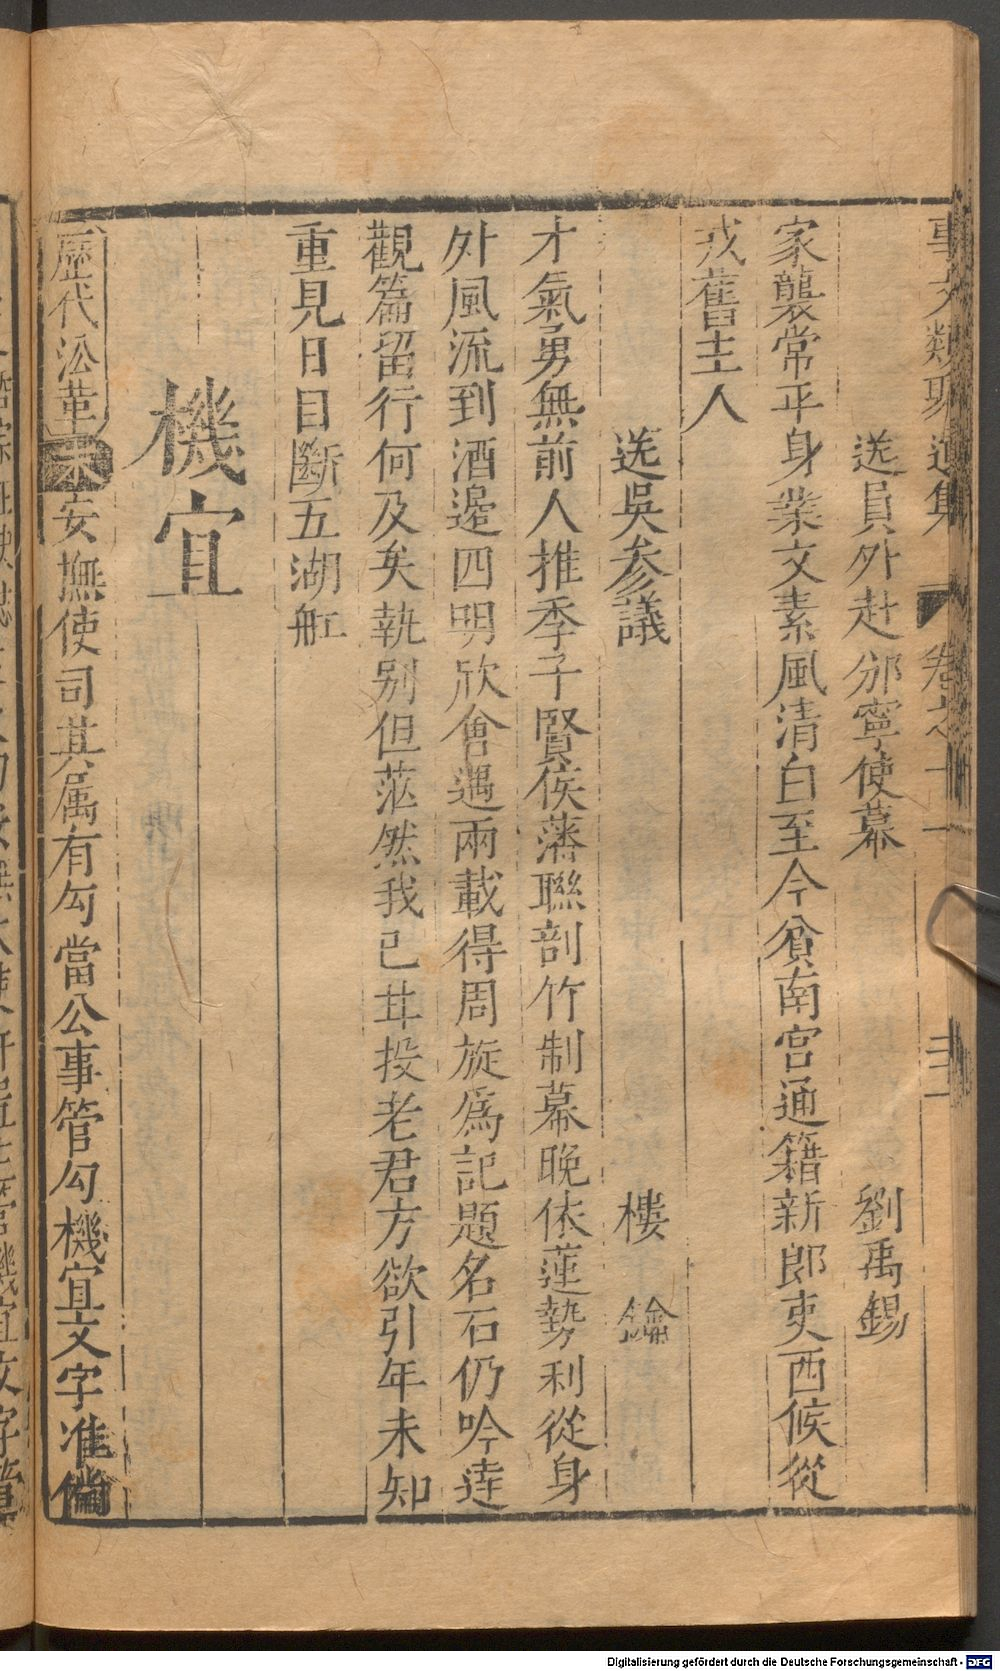 事文類聚遺集 卷之十一 三二
送員外赴邠寧使幕 劉禹錫
家襲常平身業文素風清白至今貧南宫通籍新郎吏西候從
戎舊主人
送吳参議 樓鑰
才氣勇無前人推季子賢侯藩聯剖竹制幕晚依蓮勢利從身
外風流到酒邉四明欣會遇兩載得周旋爲記題名石仍吟逹
觀篇留行何及矣執别但茫然我已甘投老君方欲引年未知
重見日目斷五湖舡
機宜
歷代㳂革宋安撫使司其属有勾當公事管勾機宜文字准備
Digitalisierung gefördert durch die Deutsche Forschungsgemeinschaft - DFG